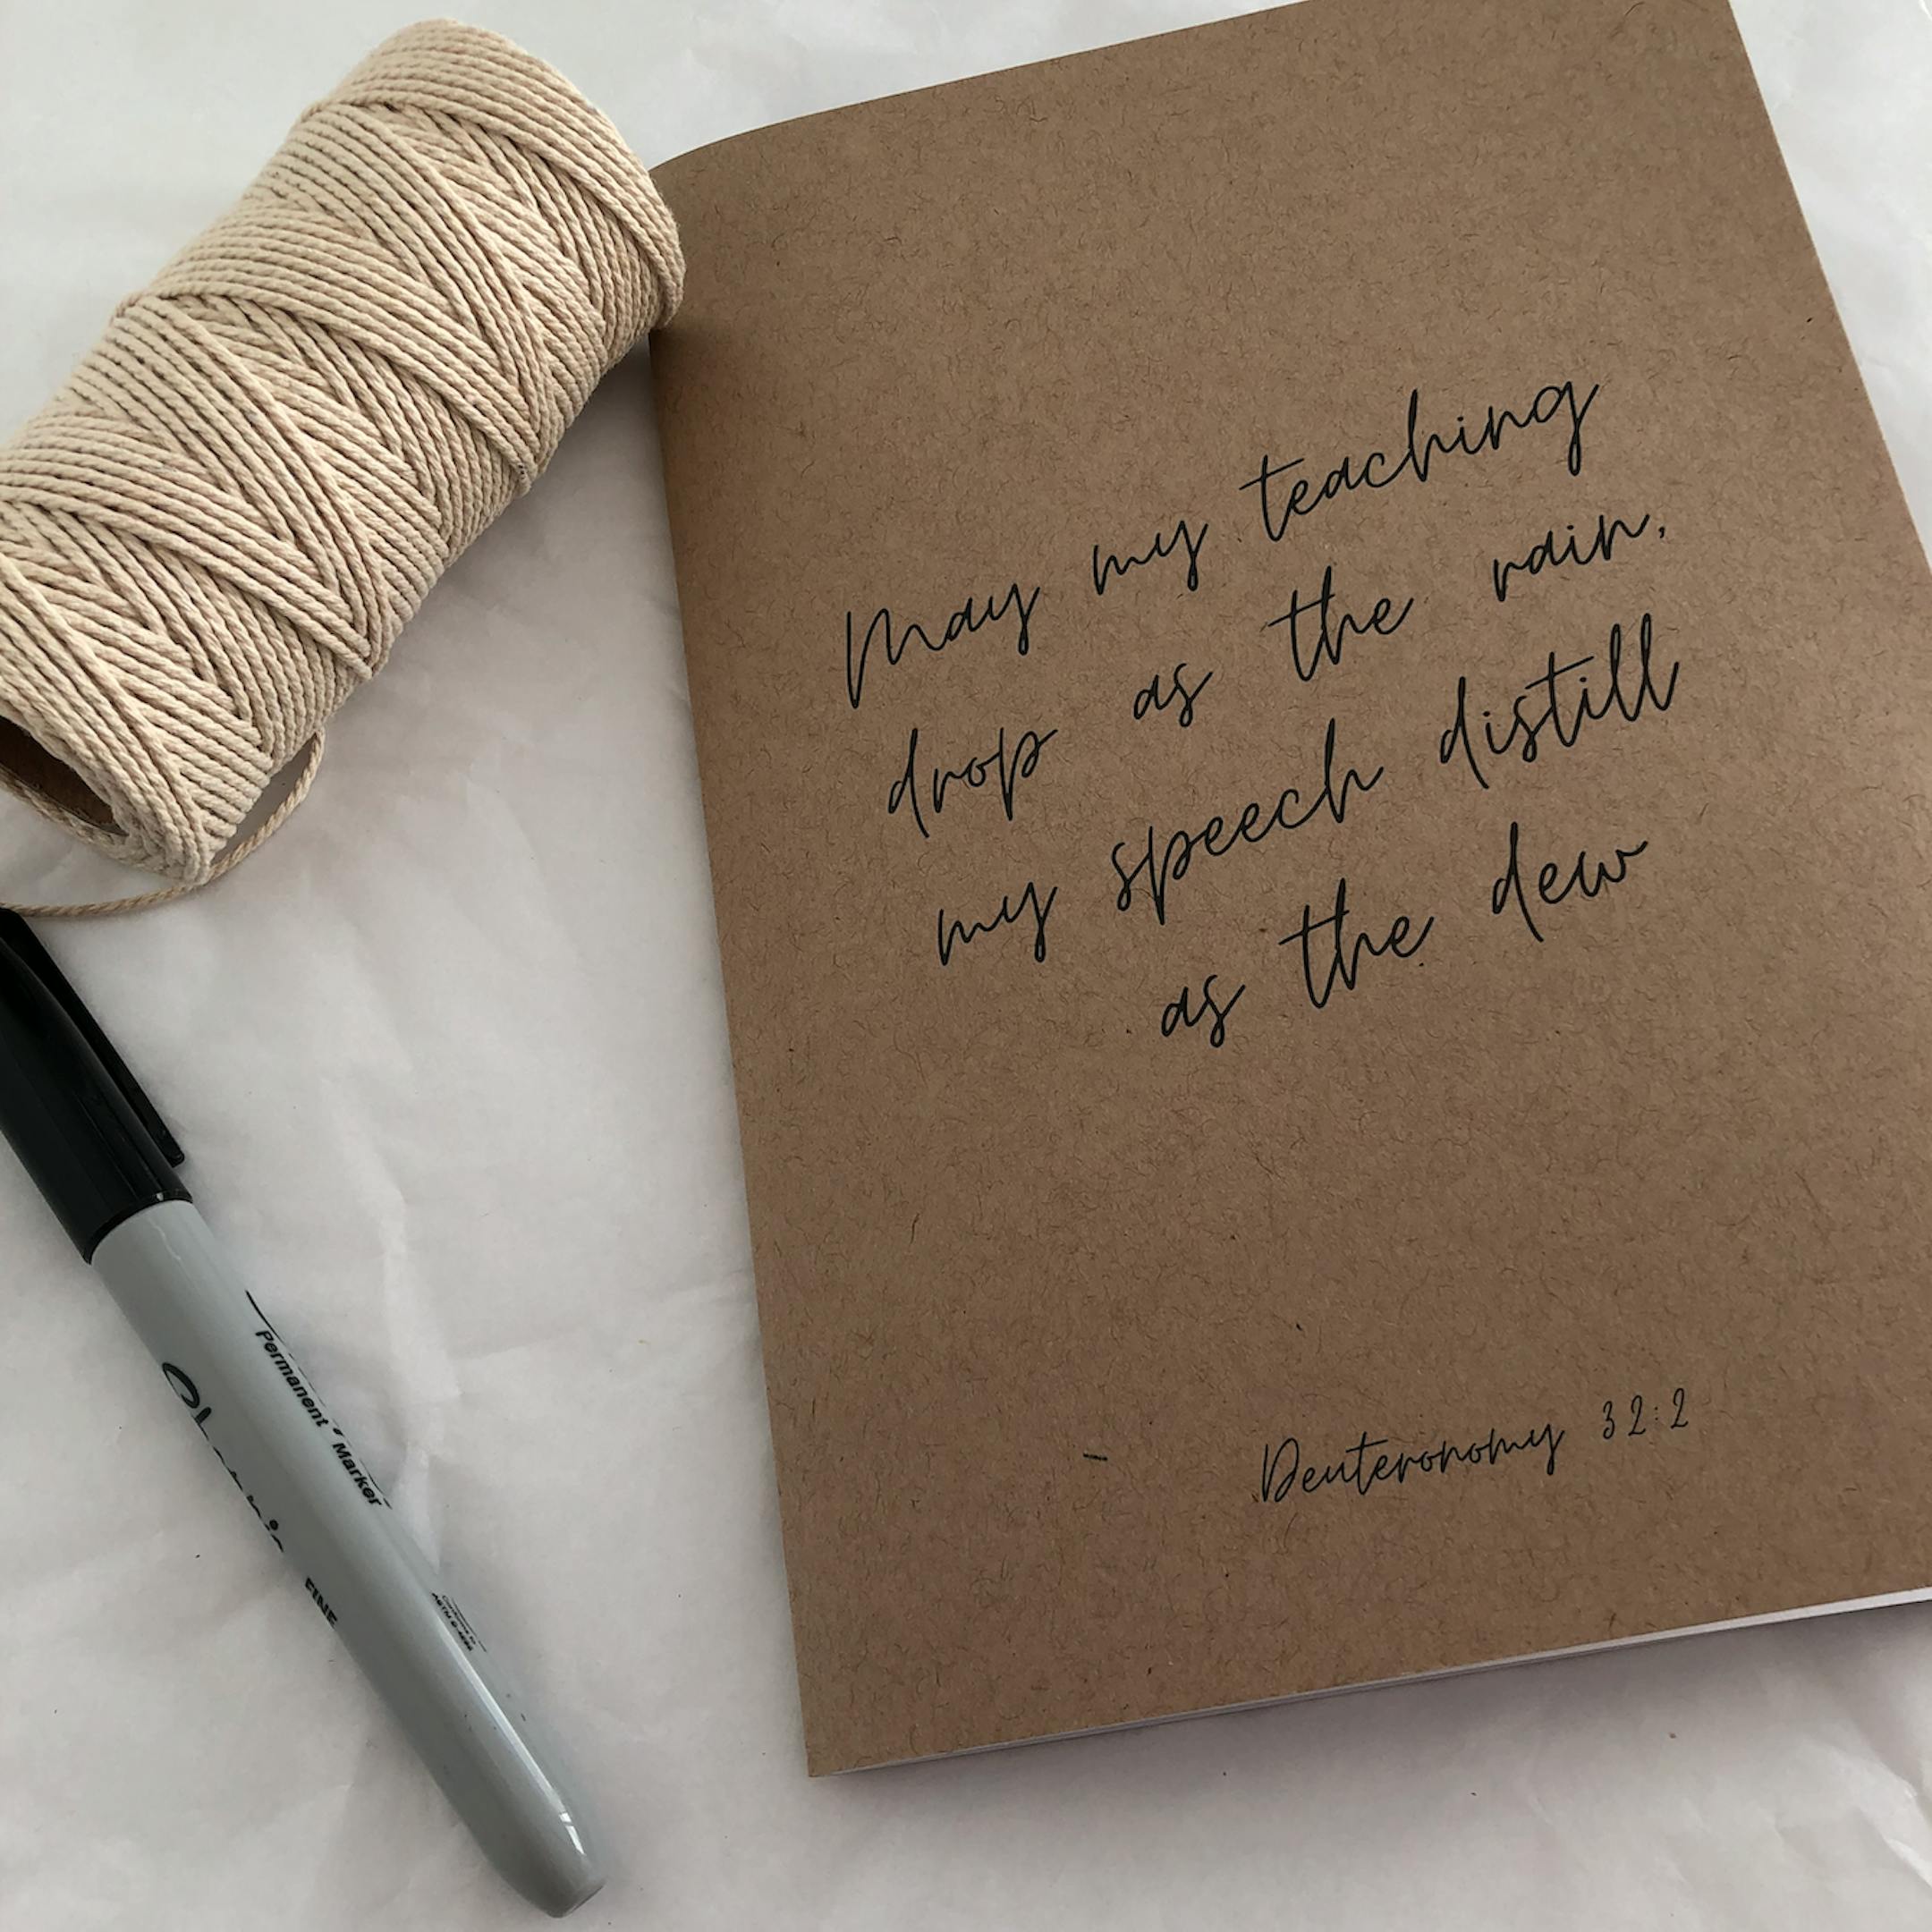 May my teaching
drop as the rain,
my speech distill
as the dew
- Deuteronomy 32:2
Permanent Marker
Sharpie
FINE